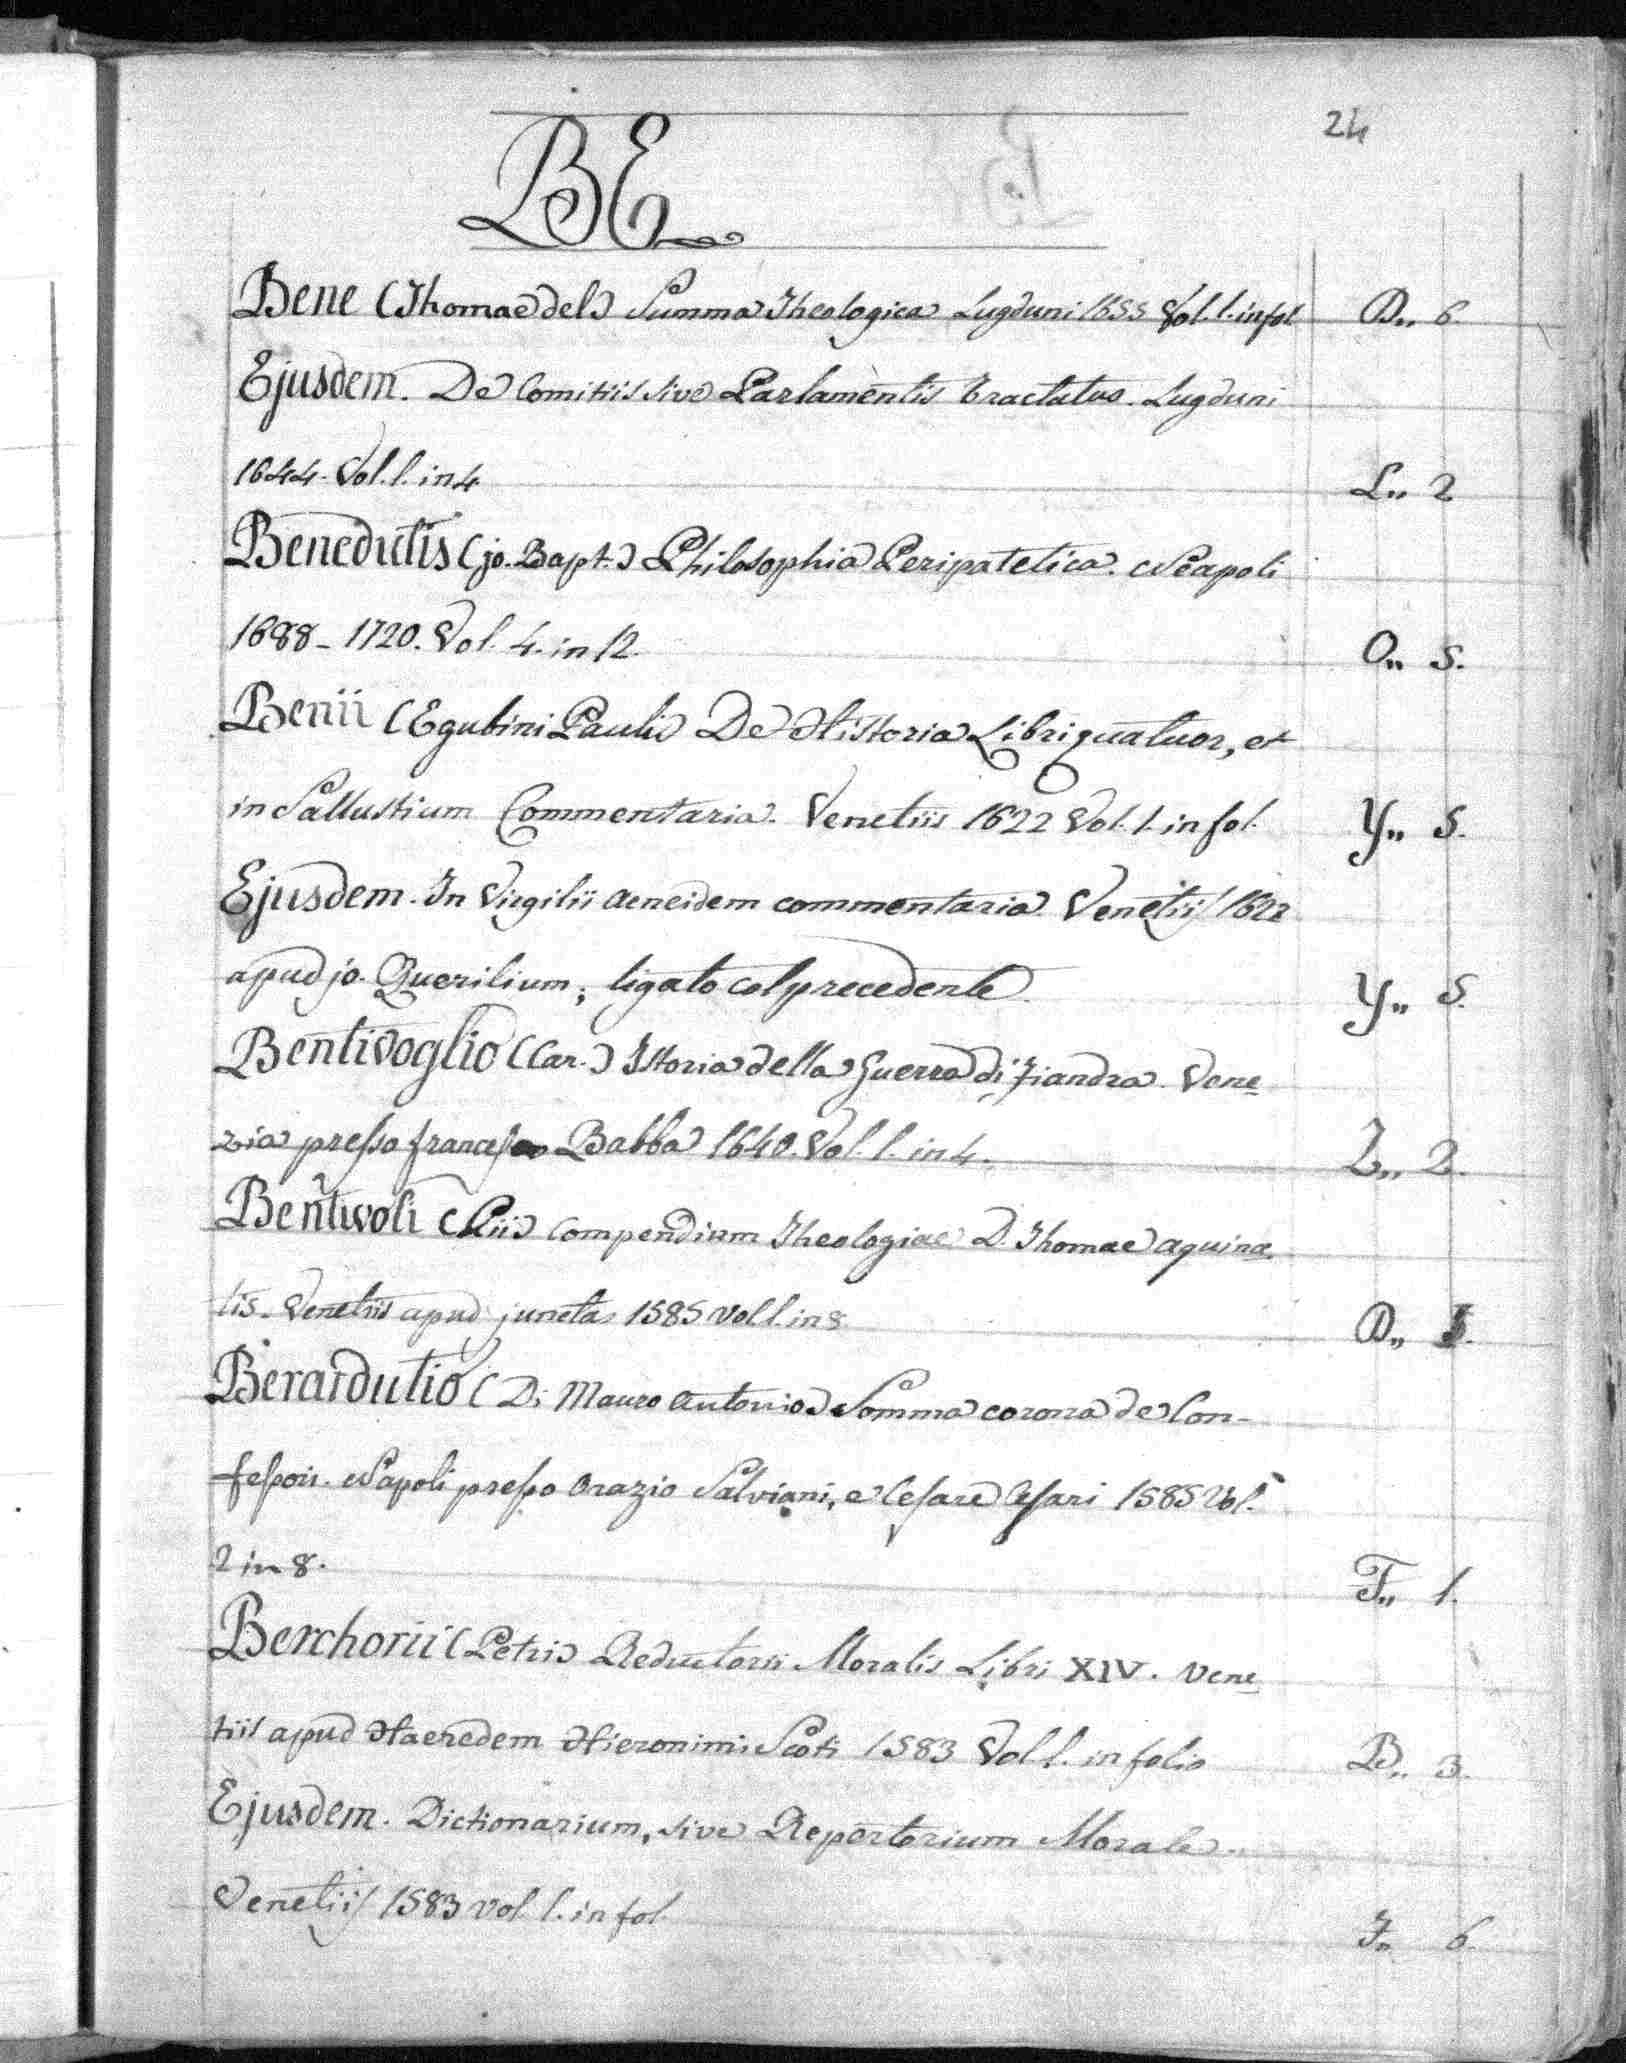 24
BE
Bene (Thomae del) Summa Theologica Lugduni 1655 Vol. 1. in fol. D,, 6.
Ejusdem. De Comitiis sive Parlamentis tractatus. Lugduni
1644. Vol. 1. in 4. L,, 2
Benedutis (jo. Bapt.) Philosophia Peripatetica. Neapoli
1688 - 1720. Vol. 4. in 12. O,, 5.
Benii (Egubini Pauli) De Historia Libri quatuor, et
in Sallustium Commentaria. Venetiis 1622 Vol. 1. in fol. Y,, 5.
Ejusdem. In Virgilii aeneidem commentaria Venetiis 1622
apud jo. Querilium; ligato col precedente Y,, 5.
Bentivoglio (Car.) Istoria della Guerra di Fiandra. Vene
zia presso francesco Babba 1640. Vol. 1. in 4. Z,, 2.
Bentivoli (Pii) Compendium Theologiae D. Thomae aquina
tis. Venetiis apud junctas 1585 vol 1. in 8 D,,
Berardutio (Di Mauro Antonio) Somma corona de Con-
fessori. Napoli presso Orazio Salviani, e Cesare Cesari 1585 Vol.
2 in 8. F,, 1.
Berchorii (Petri) Reductorii Moralis Libri XIV. Vene
tiis apud Haeredem Hieronimi Scoti 1583 Vol 1. in folio B,, 3.
Ejusdem. Dictionarium, sive Repertorium Morale.
Venetiis 1583 vol. 1. in fol. 6.